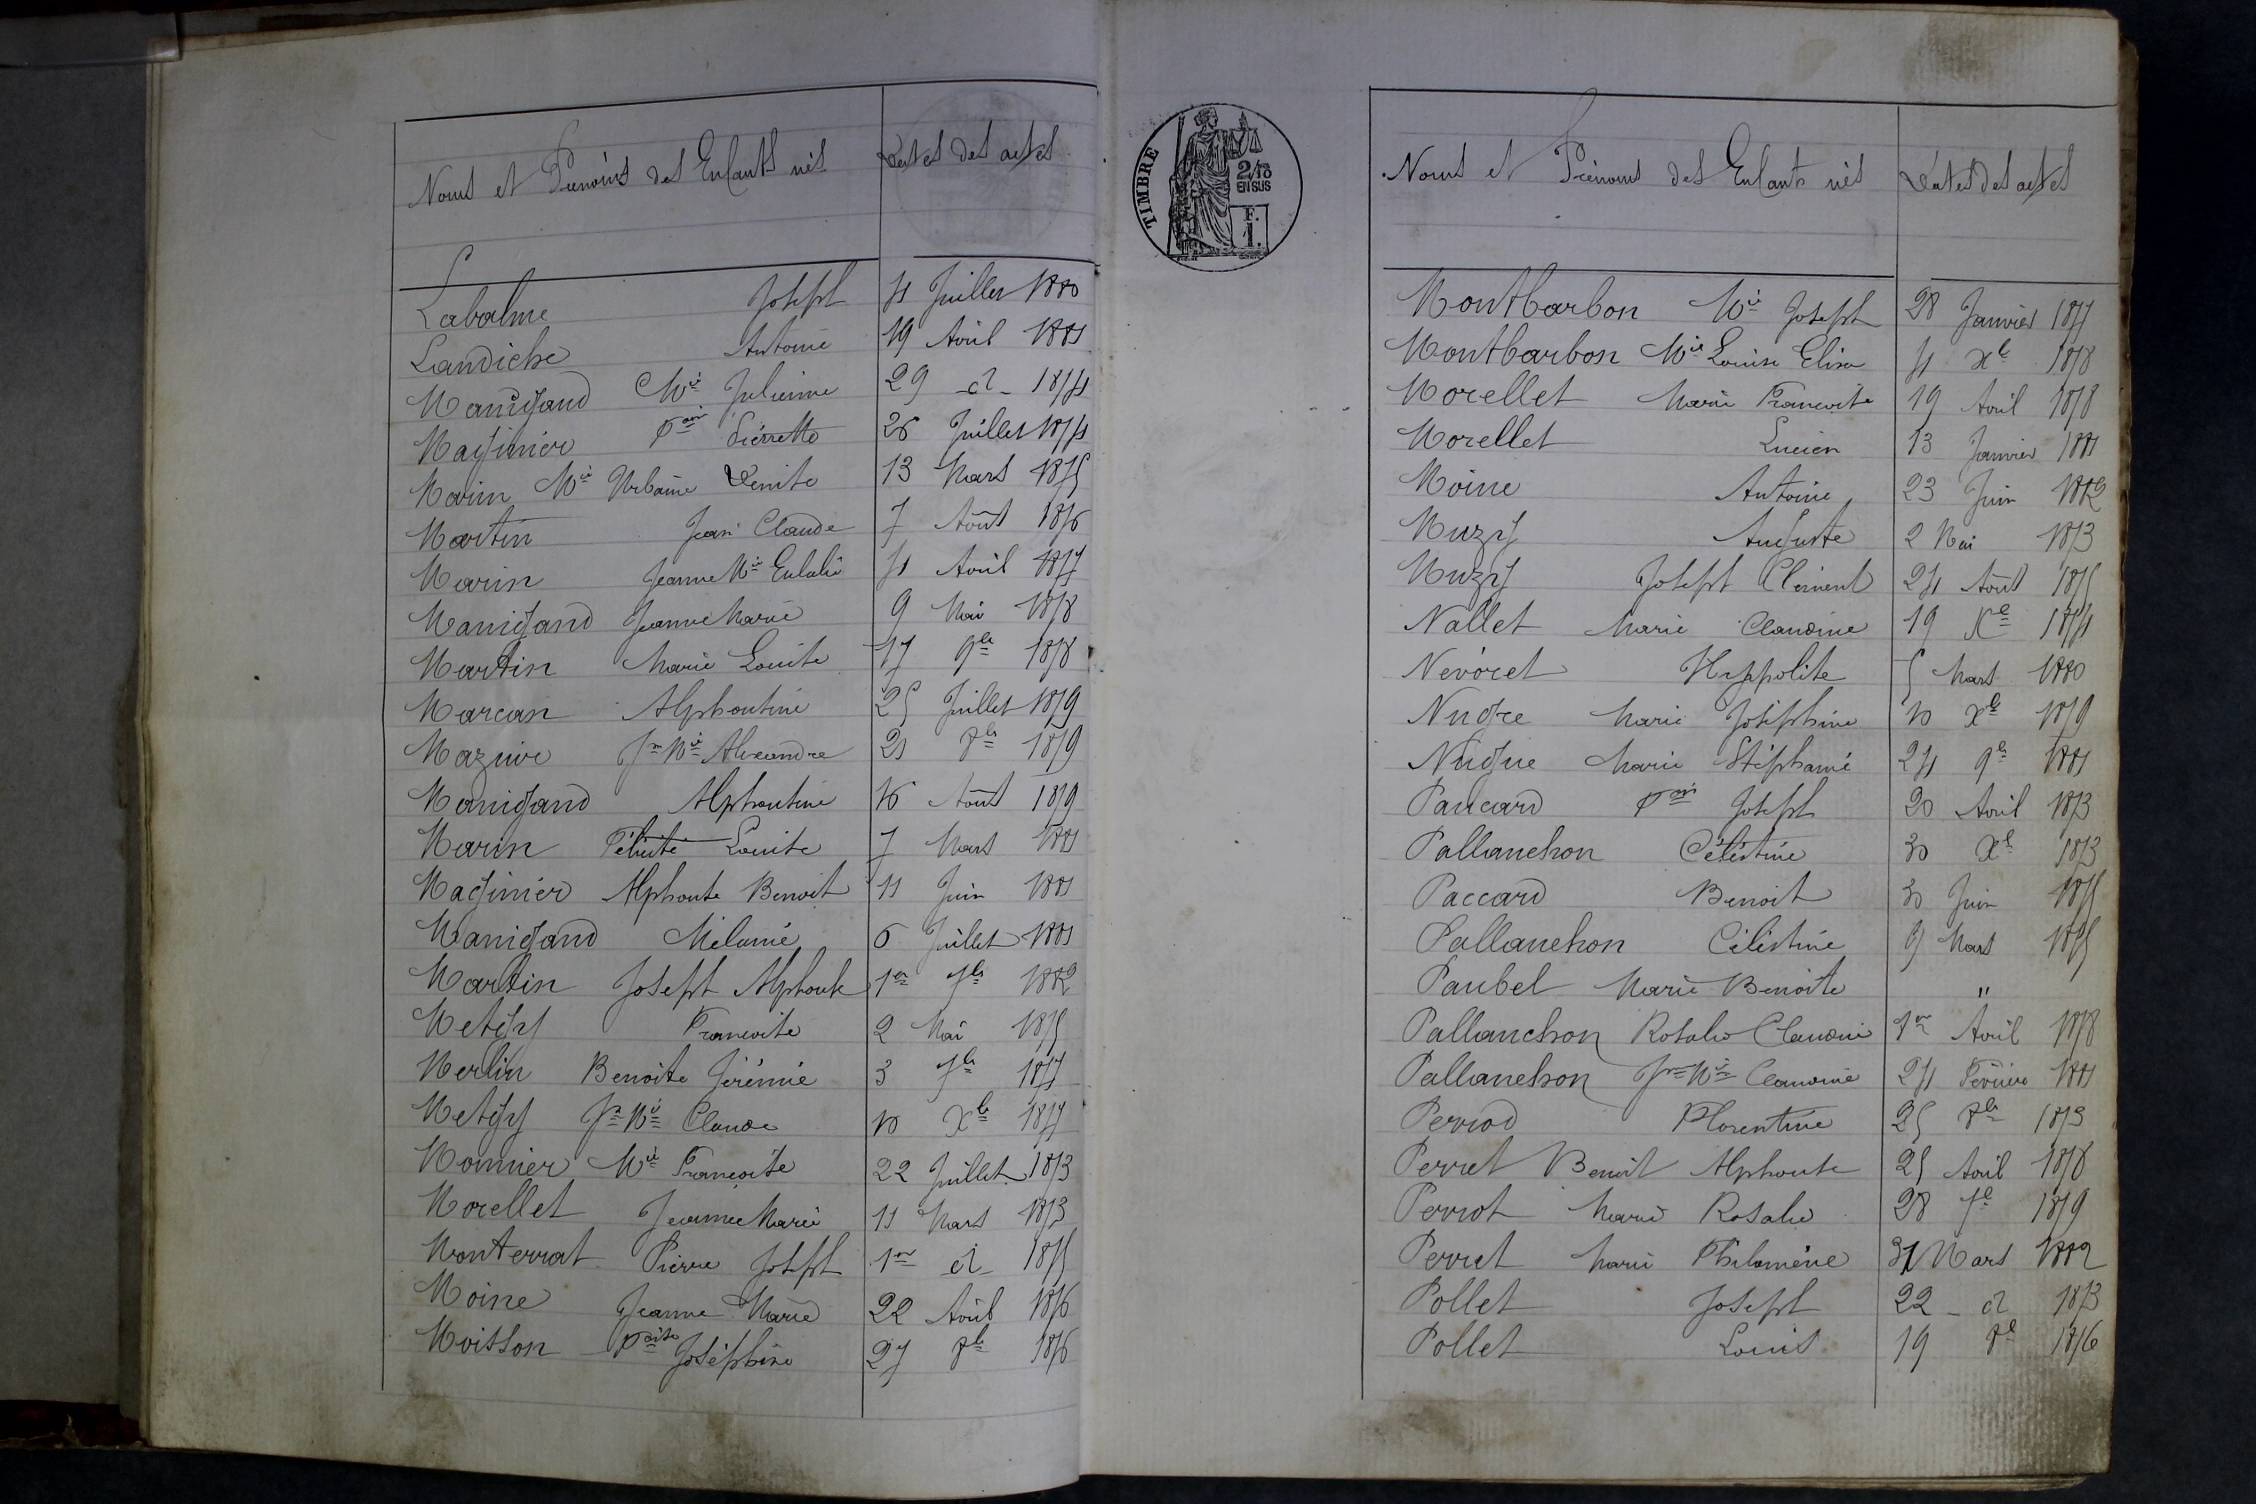 Noms et Prénoms des Enfants nés Dates des actes
Labalme Joseph 4 Juillet 1880
Landiche Antoine 19 Avril 1881
Manigand Mie Julienne 29 -d- 1874
Maginier Fçois Pierrette 26 Juillet 1874
Marin Mie Urbaine Denise 13 Mars 1875
Martin Jean Claude 7 Août 1876
Marin Jeanne Mie Eulalie 4 Avril 1877
Manigand Jeanne Marie 9 Mai 1878
Martin Marie Louise 17 9bre 1878
Marcan Alphonsine 25 Juillet 1879
Mazuire Jn Mie Alexandre 21 8bre 1879
Manigand Alphonsine 16 Août 1879
Marin Félicité Louise 7 Mars 1881
Maginier Alphonse Benoit 11 Juin 1881
Manigand Mélanie 6 Juillet 1881
Martin Joseph Alphonse 1er 7bre 1882
Metgy Françoise 2 Mai 1875
Merlin Benoite Jérémie 3 7bre 1877
Metgy Jn Mie Claude 10 Xbre 1877
Monnier Mie Françoise 22 Juillet 1873
Morellet Jeanne Marie 11 Mars 1873
Monterrat Pierre Joseph 1er d- 1875
Moine Jeanne Marie 22 Avril 1876
Moisson Fçoise Joséphine 27 8bre 1876
TIMBRE
2/10
EN SUS
F.
1.
Noms et Prénoms des Enfants nés Dates des actes
Montbarbon Mie Joseph 28 Janvier 1877
Montbarbon Mie Louise Elisa 4 Xbre 1878
Morellet Marie Françoise 19 Avril 1878
Morellet Lucien 13 Janvier 1881
Moine Antoine 23 Juin 1882
Muzy Auguste 2 Mai 1873
Muzy Joseph Clément 24 Août 1875
Nallet Marie Claudine 19 Xbre 1874
Nevoret Hippolite 5 Mars 1880
Nugue Marie Joséphine 10 Xbre 1879
Nugue Marie Stéphanie 24 9bre 1881
Pancard Fçois Joseph 20 Avril 1873
Pallanchon Célestine 30 Xbre 1873
Paccard Benoit 30 Juin 1875
Pallanchon Célestine 9 Mars 1875
Paubel Marie Benoite "
Pallanchon Rosalie Claudine 1er Avril 1878
Pallanchon Jn Mie Claudine 24 Février 1881
Perrod Florentine 25 8bre 1873
Perret Benoit Alphonse 25 Avril 1878
Perrot Marie Rosalie 28 7bre 1879
Perret Marie Philomène 31 Mars 1882
Pollet Joseph 22 - d 1873
Pollet Louis 19 8bre 1876